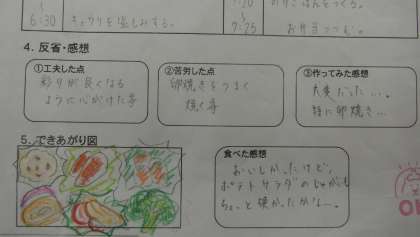 6:30 キュウリを塩もみする。
7:10 おにごはんをつくる。
7:25 お弁当つつむ。
4. 反省・感想
①工夫した点
彩りが良くなる
ように心がけた事
②苦労した点
卵焼きをうまく
焼く事
③作ってみた感想
大変だった…。
特に卵焼き…
5. できあがり図
食べた感想
おいしかったけど、
ポテトサラダのじゃがいも
ちょっと硬かったかな…。
OK